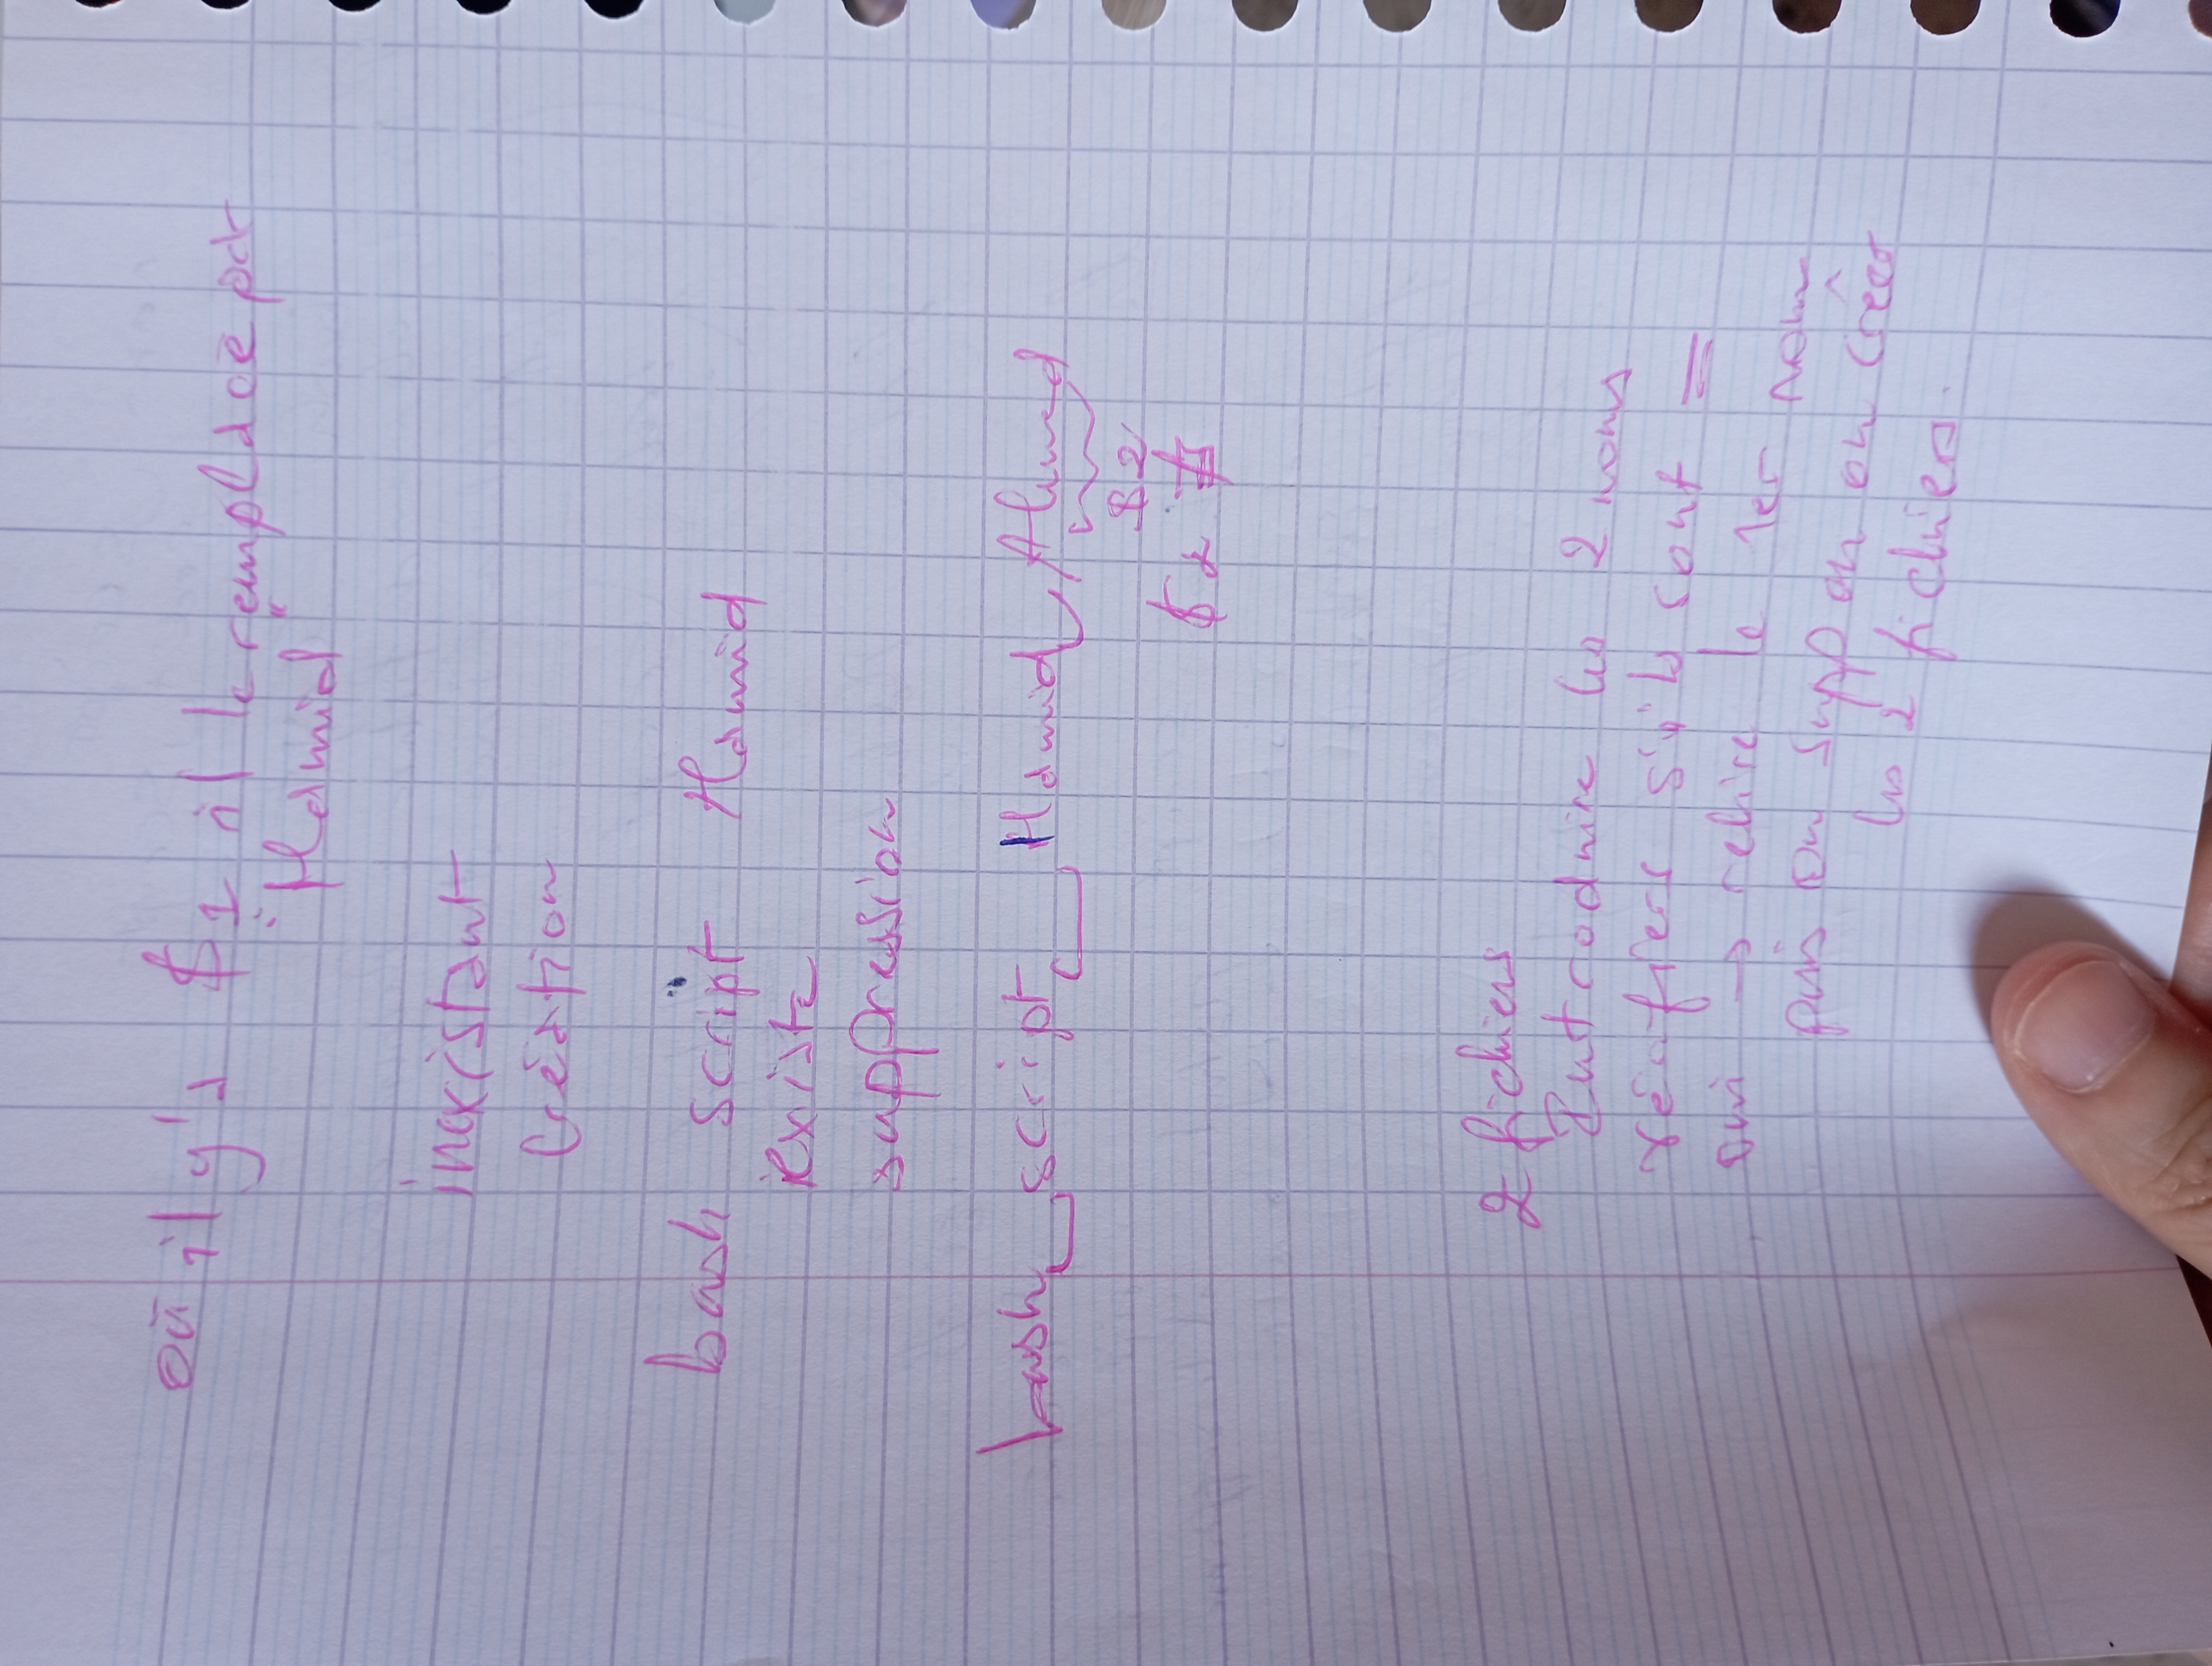 où il y'a $1 il le remplace par
"Hamid"
inexistant
Création
bash script Hamid
existe
suppression
bash script Hamid Ahmed
$2
$2
2 fichiers
Introduire les 2 noms
vérifiers s'ils sont =
oui → retire le 1er nom
puis on supp ou on créer
les 2 fichiers.